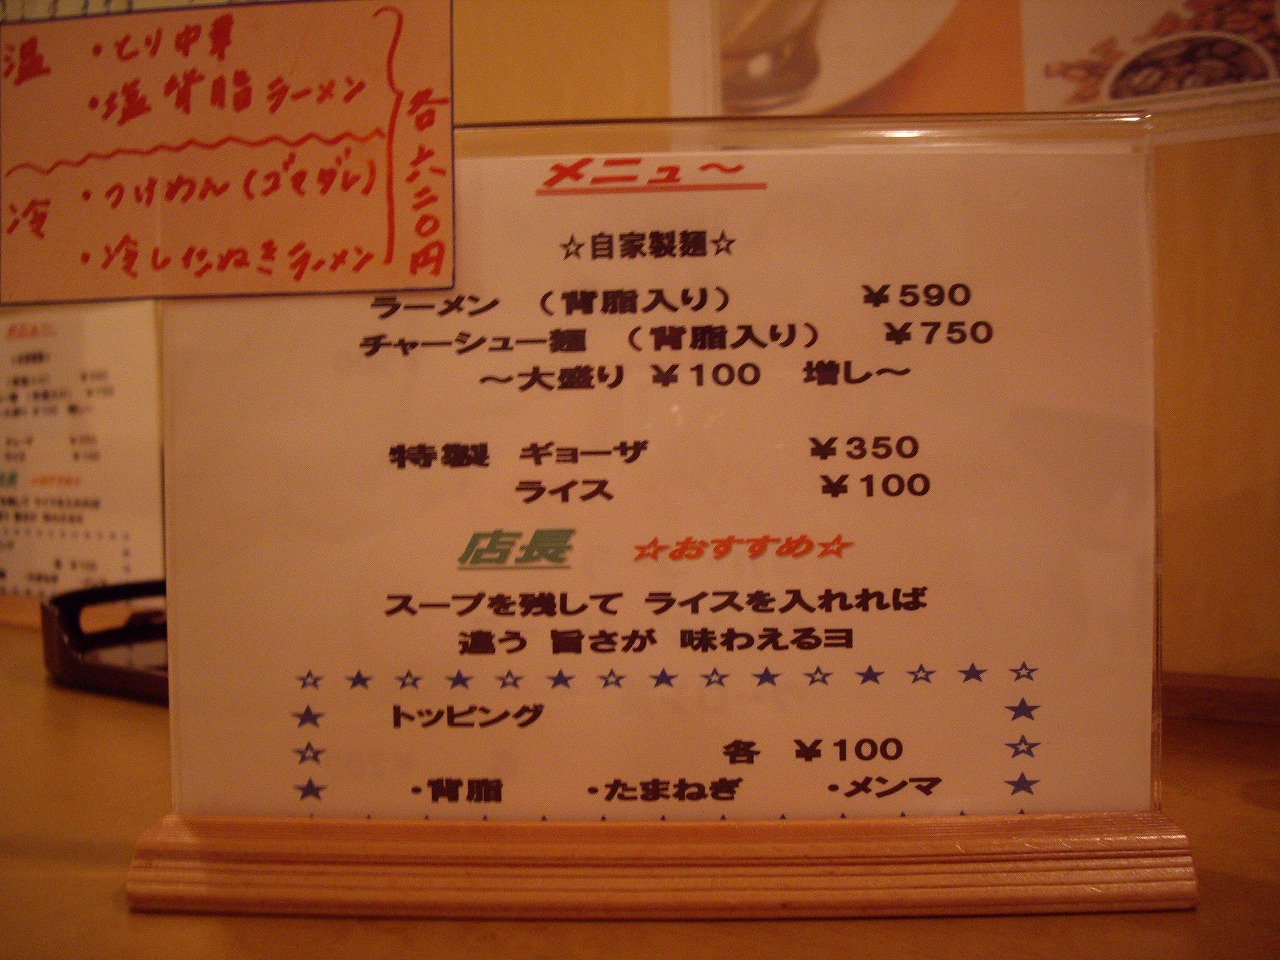 温 ・とり中華
・塩背脂ラーメン
冷 ・つけめん(ゴマダレ)
・冷したぬきラーメン
各六二〇円
メニュ～
☆自家製麺☆
ラーメン (背脂入り) ￥590
チャーシュー麺 (背脂入り) ￥750
～大盛り ￥100 増し～
特製 ギョーザ ￥350
ライス ￥100
店長 ☆おすすめ☆
スープを残して ライスを入れれば
違う 旨さが 味わえるヨ
トッピング
各 ￥100
・背脂 ・たまねぎ ・メンマ